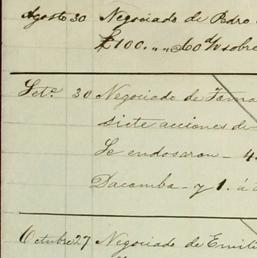 Agosto 30 Negociado de Pedro
£100.,, 60 d/v sobre
Set.e 30 Negociado de
siete acciones de
Se endosaron - 4
Dacamba - y 1. á
Octubre 27 Negociado de Emili